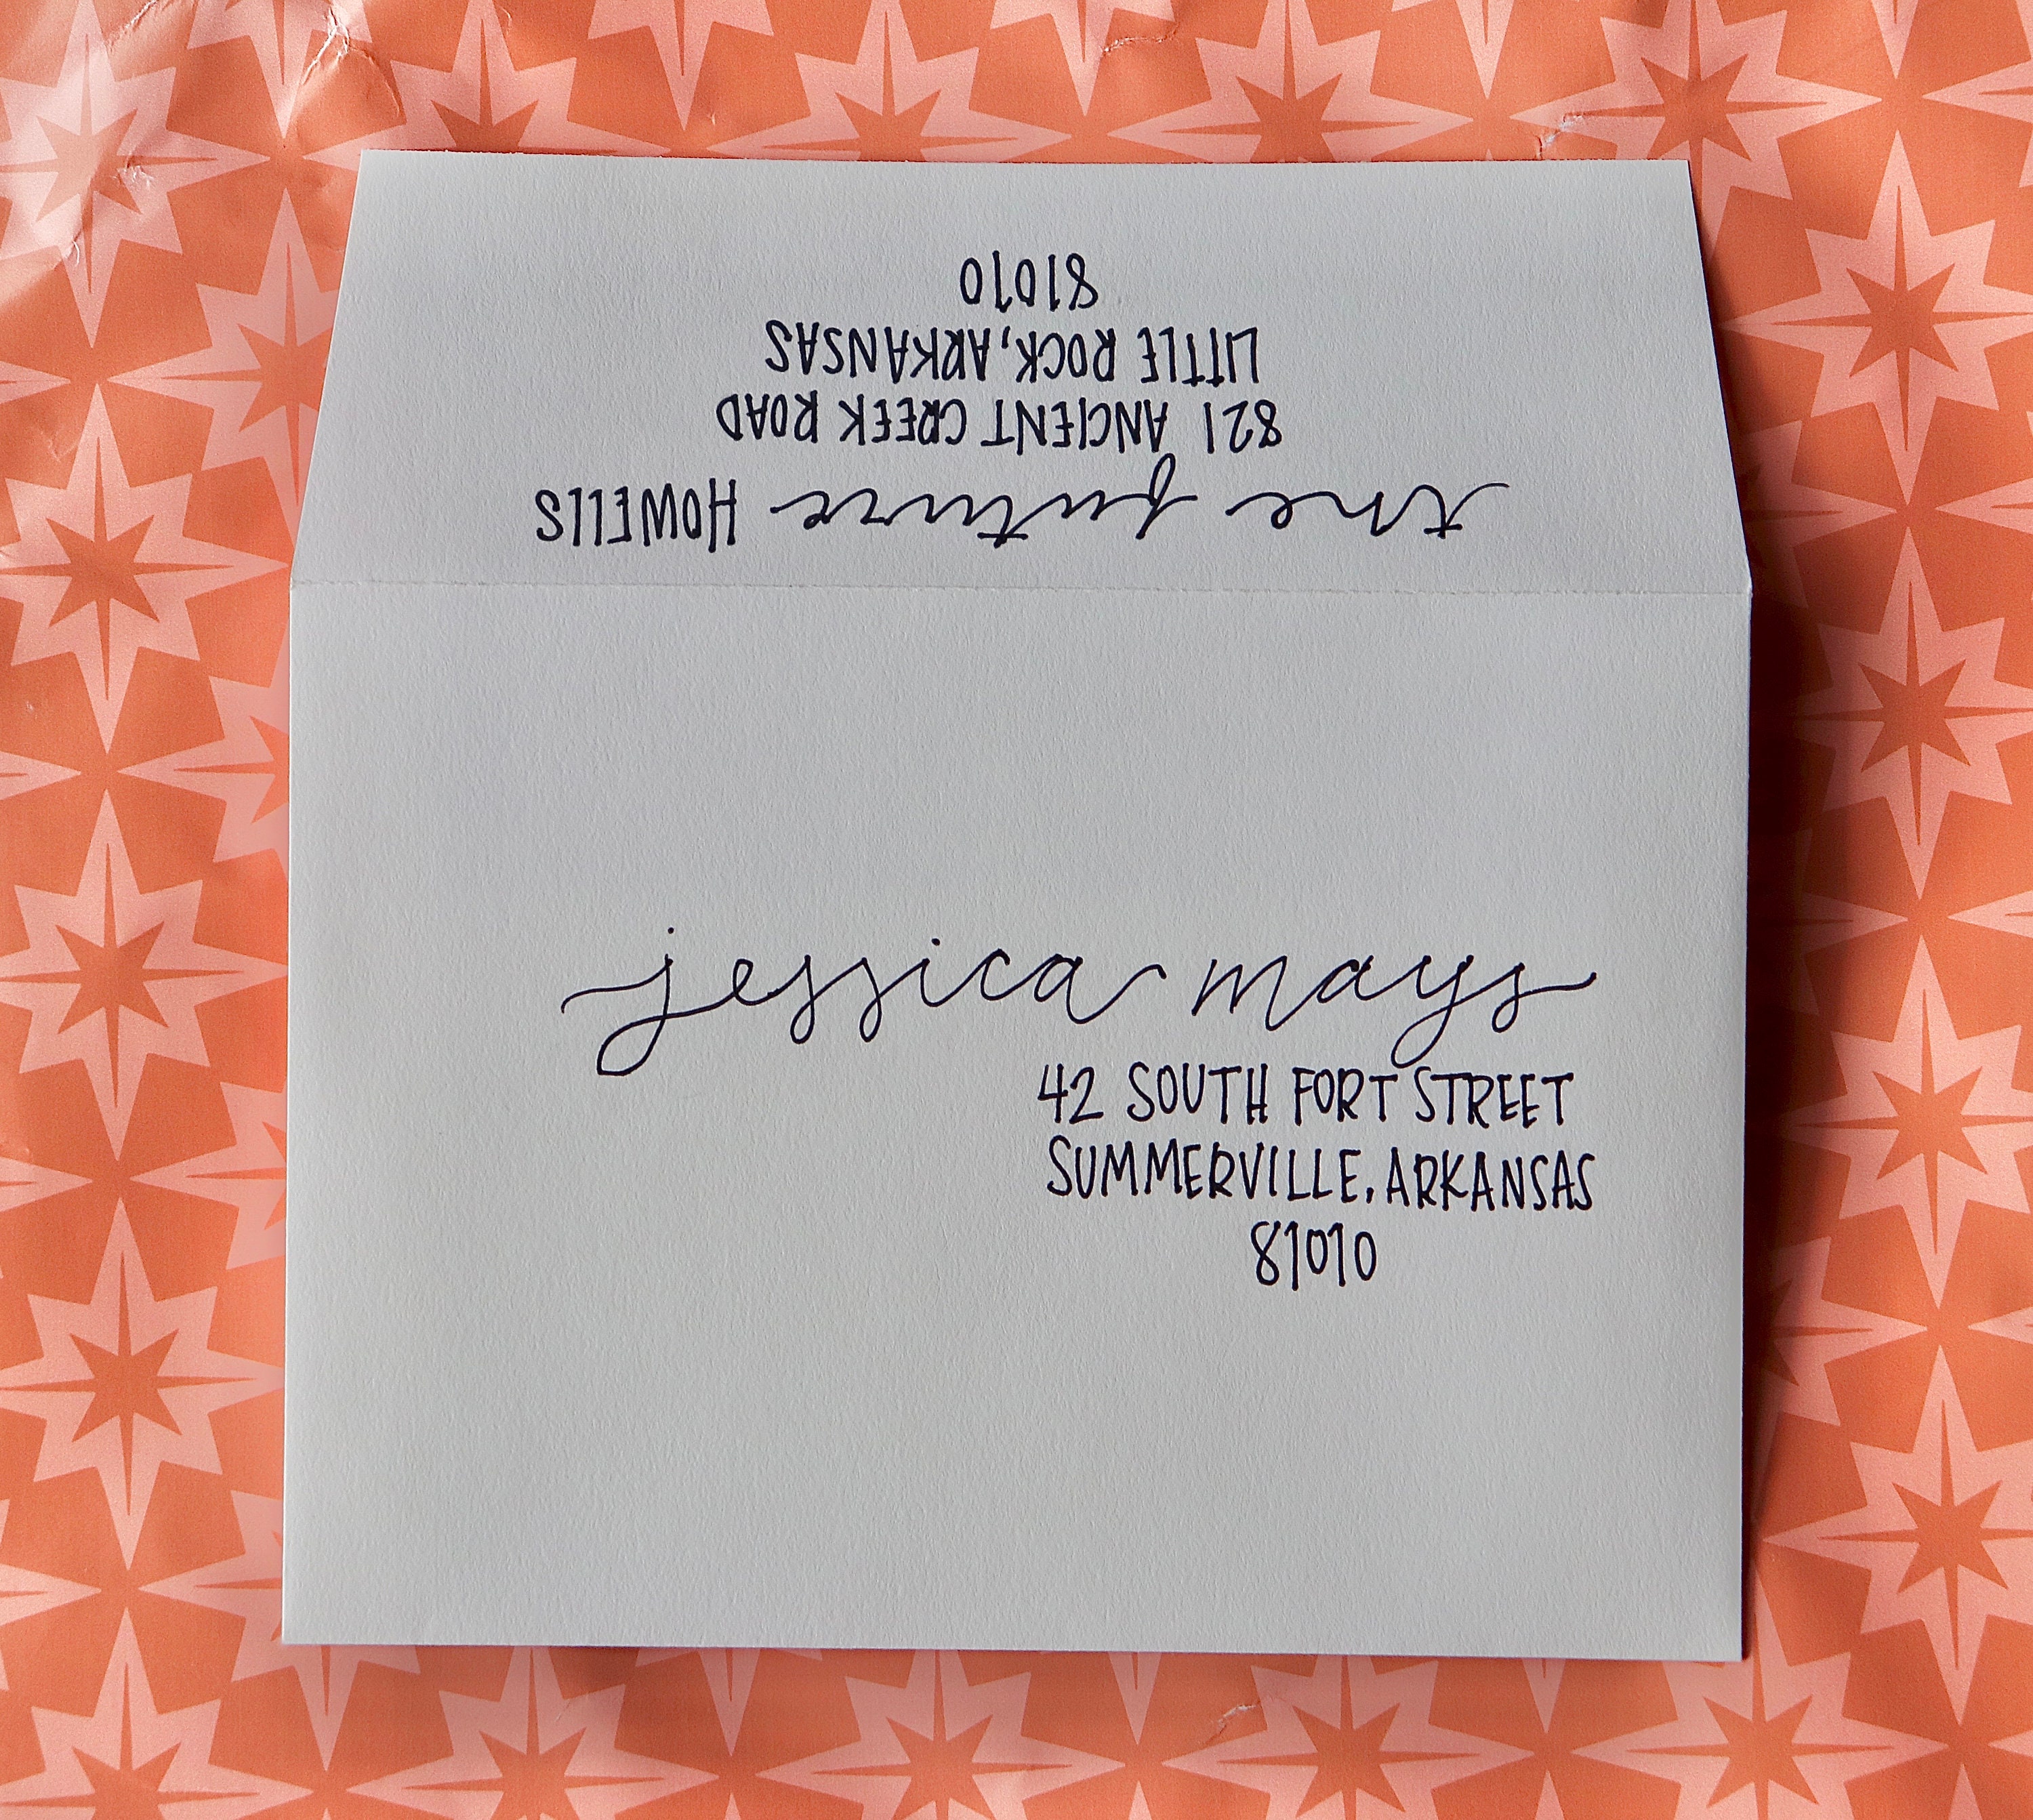 the future HOWELLS
821 ANCIENT CREEK ROAD
LITTLE ROCK, ARKANSAS
81010
jessica mays
42 SOUTH FORT STREET
SUMMERVILLE, ARKANSAS
81010